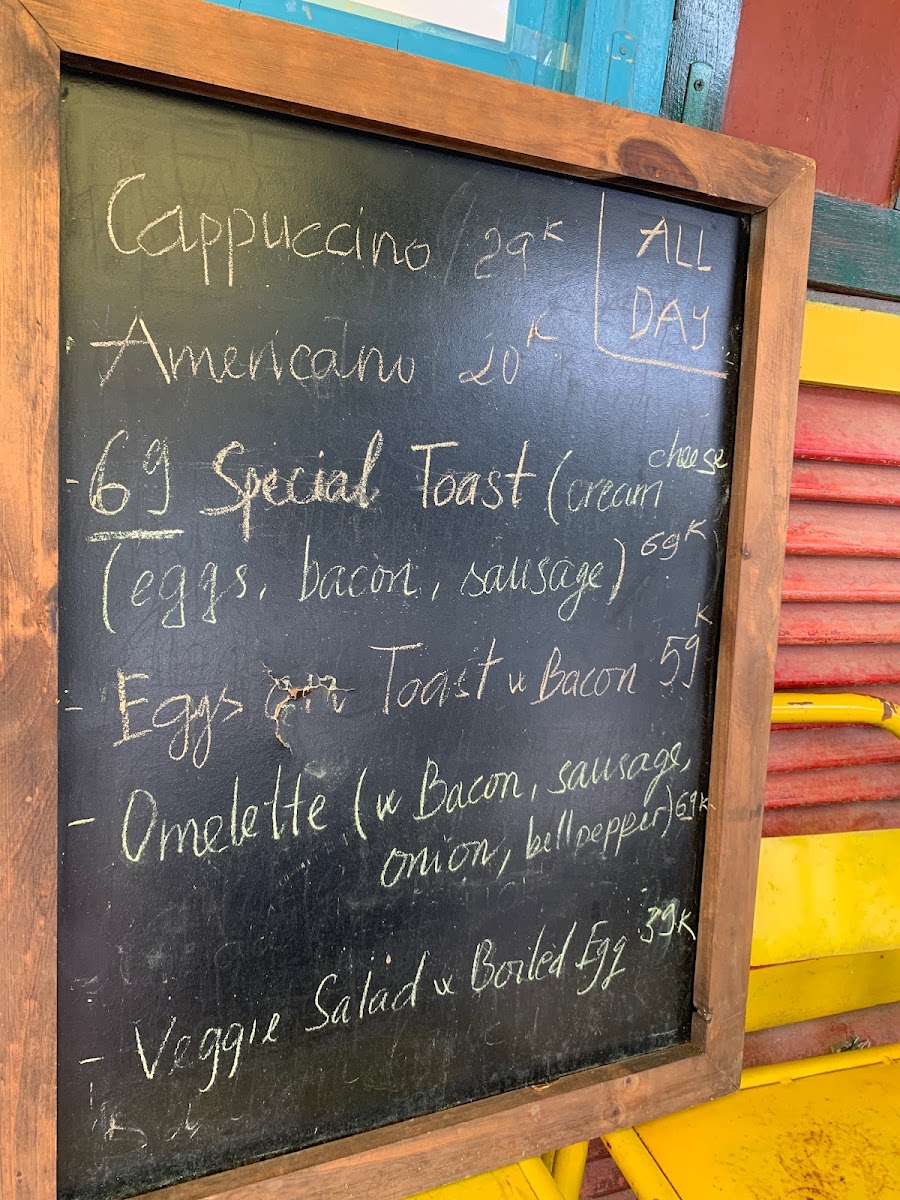 Cappuccino / 29K
ALL
DAY
Americano 20K
- 69 Special Toast (cream cheese
(eggs, bacon, sausage) 69K
- Eggs on Toast w Bacon 59K
- Omelette (w Bacon, sausage,
onion, bellpepper) 69K
- Veggie Salad w Boiled Egg 39K